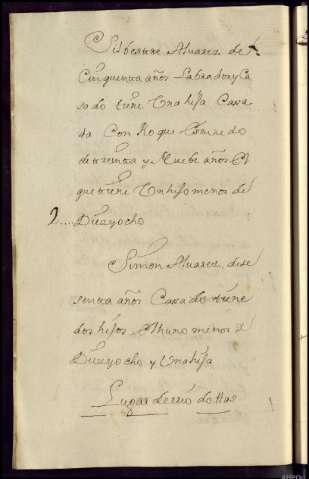 Silbestre Alvarez de
Cinquenta años Labrador y Ca
sado tiene Una hija Casa
da Con Roque
de treinta y Nuebe años El
que tiene Un hijo menor de
2.... Diez y ocho
Simon Alvarez, de se
senta años Casado tiene
dos hijos Alhuno menor de
Diez y ocho y Una hija
Lugar de